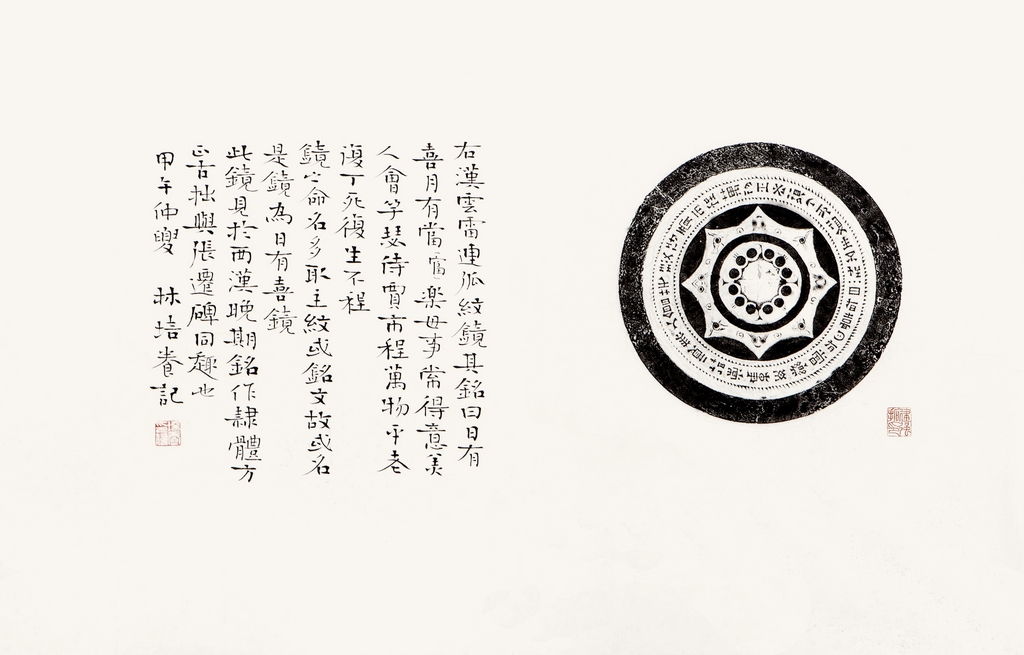 右漢雲雷連弧紋鏡其銘曰日有
喜月有當富樂毋事常得意美
人會竽瑟侍賈市程萬物平老
復丁死復生不程
鏡之命名多取主紋或銘文故或名
是鏡為日有喜鏡
此鏡見於西漢晚期銘作隸體方
正古拙與張遷碑同趣也
甲午仲夏 林培養記